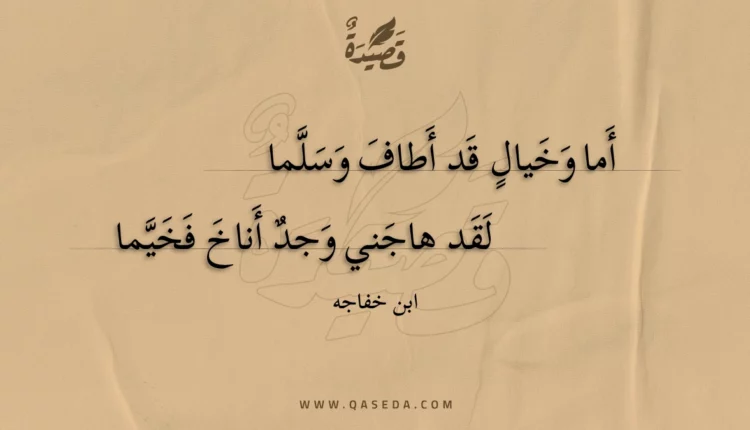 قَصِيدَةٌ
أَما وَخَيالٍ قَد أَطافَ وَسَلَّما
لَقَد هاجَني وَجدٌ أَناخَ فَخَيَّما
ابن خفاجه
WWW.QASEDA.COM